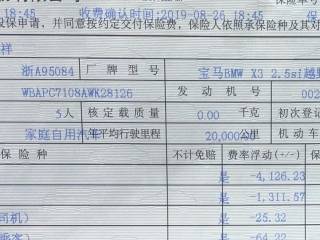 18:45 收费确认时间:2019-08-26 18:45
投保申请,并同意按约定交付保险费,保险人依照承保险种及其对
祥
浙A95084 厂牌型号 宝马BMW X3 2.5si越野
WBAPC7108AWK28126 发动机号 002
5人 核定载质量 0.00 千克 初次登记
家庭自用汽车 年平均行驶里程 20,000.00 公里 机动车
保险种 不计免赔 费率浮动(+/-) 保
是 -4,126.23
是 -1,311.57
司机) 是 -25.32
乘客) 是 -64.22